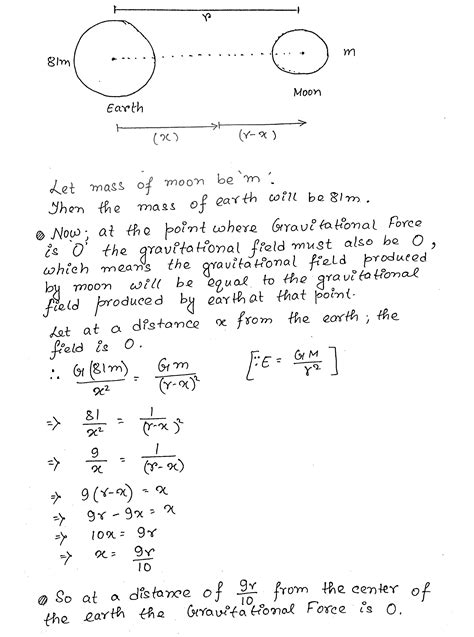 r
81m
m
Moon
Earth
(x) (r-x)
Let mass of moon be 'm'.
Then the mass of earth will be 81m.
Now; at the point where Gravitational Force
is '0' the gravitational field must also be 0,
which means the gravitational field produced
by moon will be equal to the gravitational
field produced by earth at that point.
Let at a distance x from the earth; the
field is 0.
∴ G(81m)/x² = Gm/(r-x)² [∵E = GM/r²]
=> 81/x² = 1/(r-x)²
=> 9/x = 1/(r-x)
=> 9(r-x) = x
=> 9r - 9x = x
=> 10x = 9r
=> x = 9r/10
So at a distance of 9r/10 from the center of
the earth the Gravitational Force is 0.